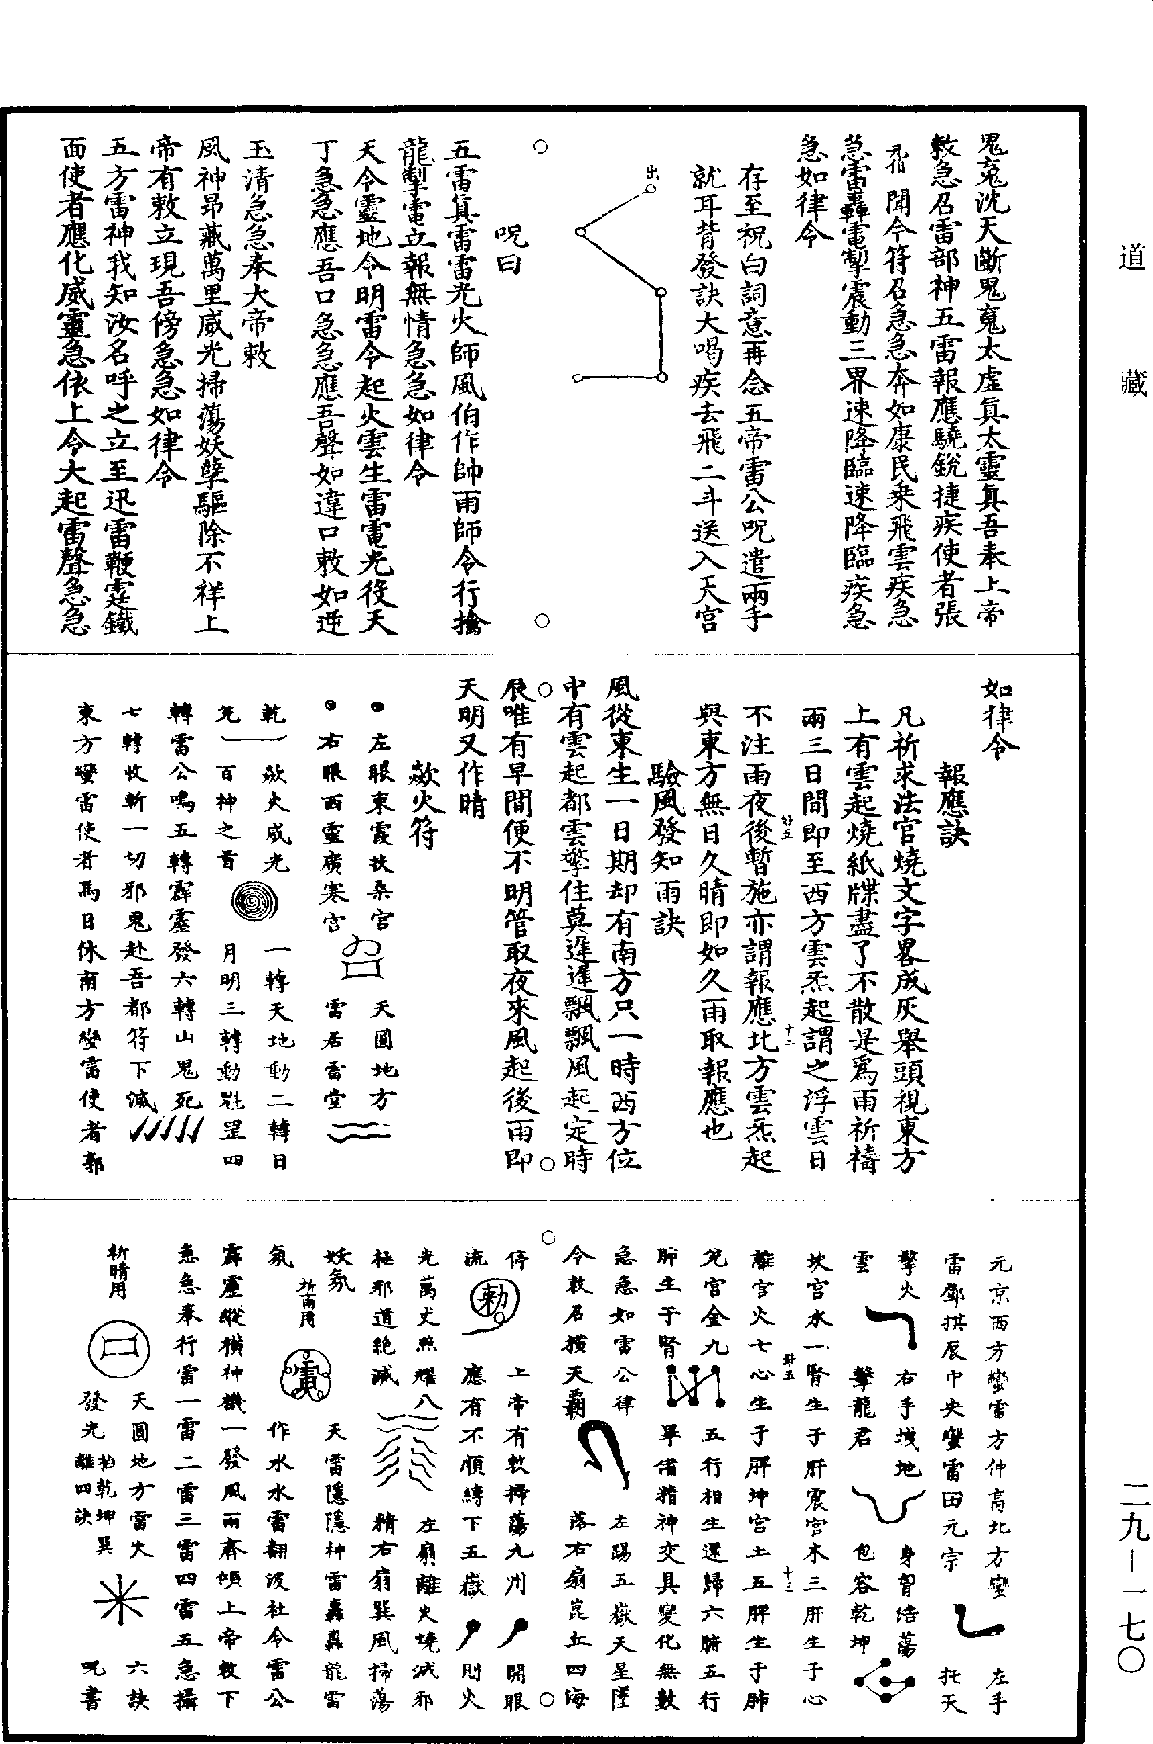 道藏
二九—一七〇
鬼寃沈天斷鬼寃太虛眞太靈眞吾奉上帝
敕急召雷部神五雷報應驍銳捷疾使者張
元伯聞令符召急急奔如康民乗飛雲疾急
急雷轟電掣震動三界速降臨速降臨疾急
急如律令
存至祝白詞意再念五帝雷公呪遣兩手
就耳背發訣大喝疾去飛二斗送入天宮
出
呪曰
五雷眞雷雷光火師風伯作帥雨師令行擒
龍掣電立報無情急急如律令
天令靈地令明雷令起火雲生雷電光役天
丁急急應吾口急急應吾聲如違口敕如逆
玉清急急奉大帝敕
風神昻藏萬里威光掃蕩妖孽驅除不祥上
帝有敕立現吾傍急急如律令
五方雷神我知汝名呼之立至迅雷鞭霆鐵
面使者應化威靈急依上令大起雷聲急急
如律令
報應訣
凡祈求法官燒文字畧成灰舉頭視東方
上有雲起燒紙牒盡了不散是爲雨祈禱
雨三日間即至西方雲炁起謂之浮雲日
不注雨夜後暫施亦謂報應北方雲炁起
與東方無日久晴即如久雨取報應也
驗風發知雨訣
風從東生一日期却有南方只一時西方位
中有雲起都雲擎住莫遲遲飄飄風起定時
辰唯有早間便不明管取夜來風起後雨即
天明又作晴
歘火符
左眼東霞扶桑宮 天圓地方
右眼西靈廣寒宮 雷居雷堂
乾 歘火威光 一轉天地動二轉日
兊 百神之首 月明三轉動魁罡四
轉雷公鳴五轉霹靂發六轉山鬼死
七轉收斬一切邪鬼赴吾都符下滅
東方蠻雷使者馬日休南方蠻雷使者郭
元京西方蠻雷方仲高北方蠻 左手
雷鄧拱辰中央蠻雷田元宗 托天
擎火 右手拽地 身智浩蕩
雲 擎龍君 包容乾坤
坎宮水一腎生于肝震宮木三肝生于心
離宮火七心生于脾坤宮土五脾生于肺
兊宮金九 五行相生還歸六腑五行
肺生于腎 畢備精神交具變化無數
急急如雷公律 左踢五嶽天星墜
令敕召橫天霸 落右扇崑丘四海
停 上帝有敕掃蕩九州 開眼
流 敕 應有不順縛下五嶽 則火
光萬丈照耀八 左扇離火燒滅邪
極邪道絶滅 精右扇巽風掃蕩
妖氛 祈雨用 天雷隱隱神雷轟轟龍雷
氛 作水水雷翻波社令雷公
霹靂縱橫神機一發風雨齊傾上帝敕下
急急奉行雷一雷二雷三雷四雷五急攝
祈晴用 天圓地方雷火 六訣
發光 掐乾坤巽離四訣 呪書